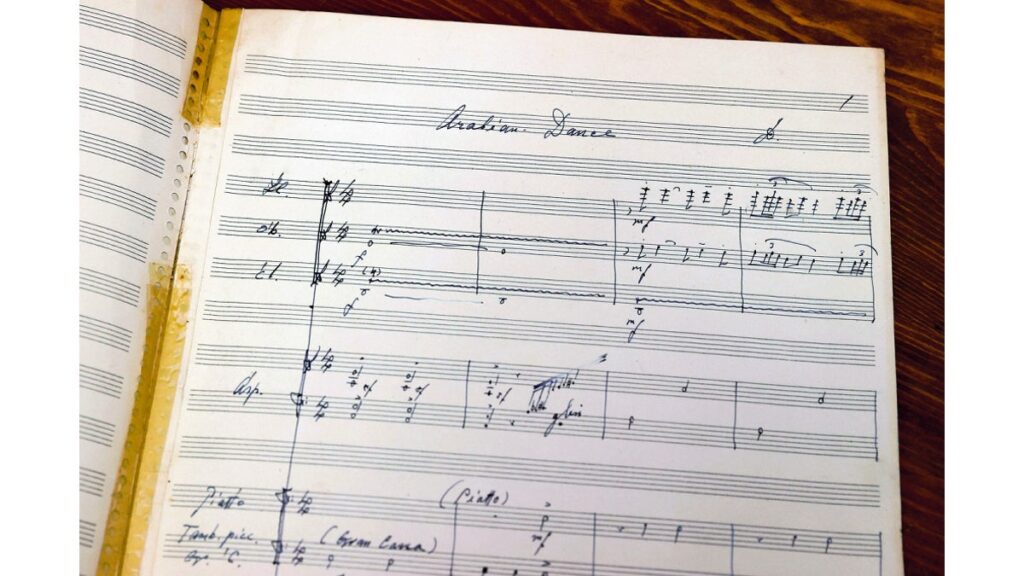 1
Arabian Dance
Fl.
mf
Ob.
f
mf
3
Cl.
f
mf
3
Arp.
gliss
Piatto
(Piatto)
mf
Tamb. picc.
(Gran Cassa)